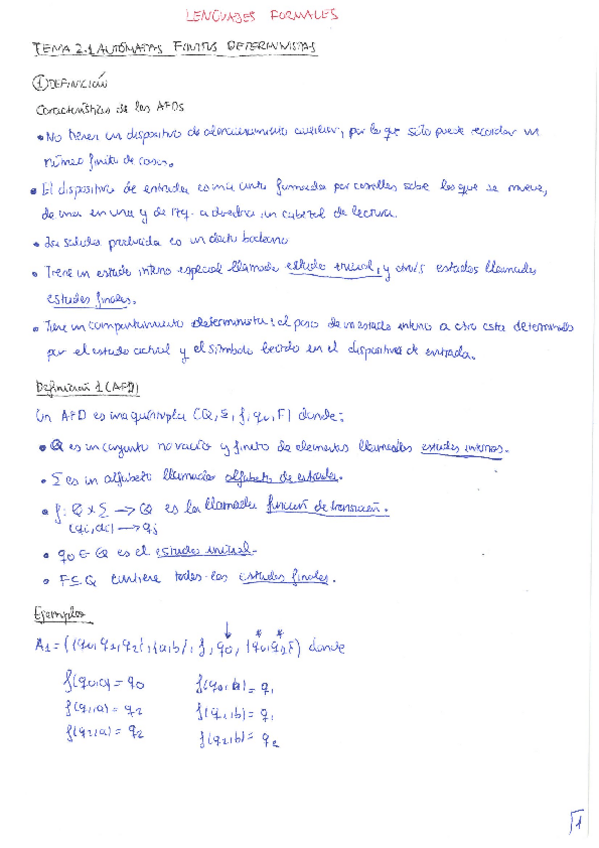 LENGUAJES FORMALES
TEMA 2.1 AUTÓMATAS FINITOS DETERMINISTAS
① DEFINICIÓN
Características de los AFDs
• No tienen un dispositivo de almacenamiento auxiliar, por lo que sólo puede recordar un
número finito de cosas.
• El dispositivo de entrada es una cinta formada por casillas sobre las que se mueve,
de una en una y de izq. a derecha, un cabezal de lectura.
• La salida producida es un dato booleano
• Tiene un estado interno especial llamado estado inicial, y otro/s estados llamados
estados finales.
• Tiene un comportamiento determinista: el paso de un estado interno a otro esta determinado
por el estado actual y el símbolo leído en el dispositivo de entrada.
Definición 1 (AFD)
Un AFD es una quíntupla (Q, Σ, f, q₀, F) donde:
• Q es un conjunto no vacío y finito de elementos llamados estados internos.
• Σ es un alfabeto llamado alfabeto de entrada.
• f: Q x Σ → Q es la llamada función de transición.
(qi, ai) → qj
• q₀ ∈ Q es el estado inicial.
• F ⊆ Q contiene todos los estados finales.
Ejemplos
A₁ = ({q₀, q₁, q₂}, {a, b}, f, q₀, {q₀, q₁}) donde
f(q₀,a) = q₀ f(q₀,b) = q₁
f(q₁,a) = q₂ f(q₁,b) = q₁
f(q₂,a) = q₂ f(q₂,b) = q₂
1